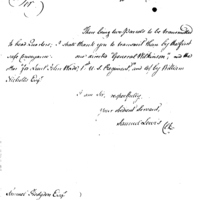 Sir
There being two Parcels to be transmitted
to head Quarters; I shall thank you to transmit them by the first
safe conveyance. one directed "General Wilkinson," and the
other for Lieut. John Wade, 1st U.S. Regiment, and
Nicholls Esqr.
I am Sir, respectfully,
Your obedient Servant,
Samuel
Samuel Hodgdon Esqr